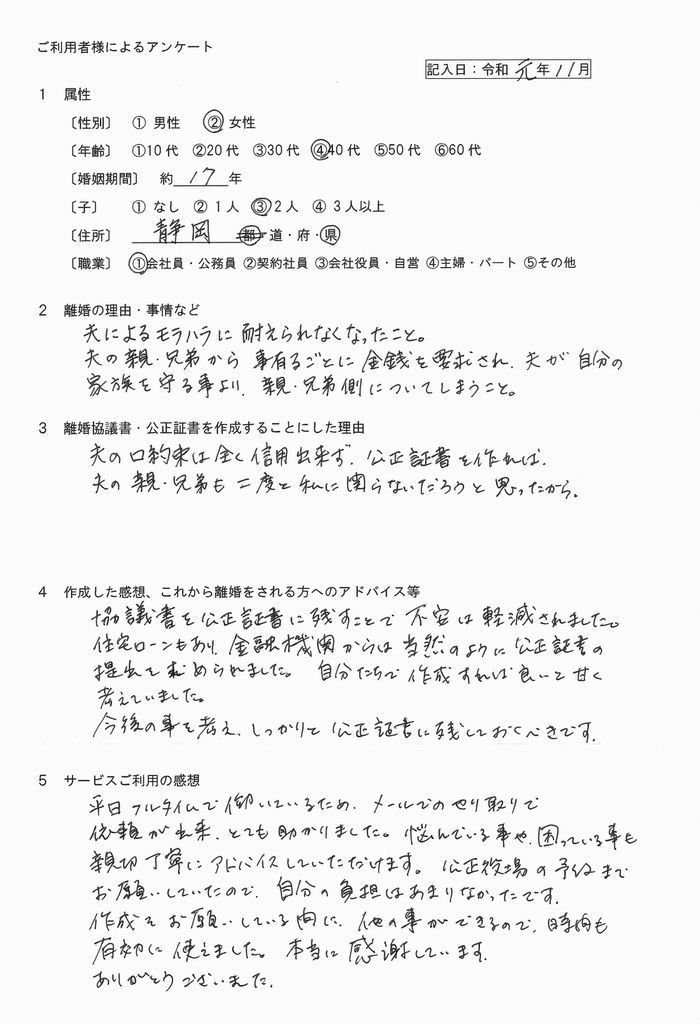 ご利用者様によるアンケート
記入日：令和 元年 11月
1 属性
〔性別〕 ① 男性 ② 女性
〔年齢〕 ①10代 ②20代 ③30代 ④40代 ⑤50代 ⑥60代
〔婚姻期間〕 約 17 年
〔子〕 ① なし ② 1人 ③ 2人 ④ 3人以上
〔住所〕 静岡 都・道・府・県
〔職業〕 ①会社員・公務員 ②契約社員 ③会社役員・自営 ④主婦・パート ⑤その他
2 離婚の理由・事情など
夫によるモラハラに耐えられなくなったこと。
夫の親・兄弟から事有るごとに金銭を要求され、夫が自分の
家族を守る事より、親・兄弟側についてしまうこと。
3 離婚協議書・公正証書を作成することにした理由
夫の口約束は全く信用出来ず、公正証書を作れば、
夫の親・兄弟も二度と私に関らないだろうと思ったから。
4 作成した感想、これから離婚をされる方へのアドバイス等
協議書を公正証書に残すことで不安は軽減されました。
住宅ローンもあり、金融機関からは当然のように公正証書の
提出を求められました。自分たちで作成すれば良いと甘く
考えていました。
今後の事を考え、しっかりと公正証書に残しておくべきです。
5 サービスご利用の感想
平日フルタイムで働いているため、メールでのやり取りで
依頼が出来、とても助かりました。悩んでいる事や、困っている事も
親切丁寧にアドバイスしていただけます。公正役場の予約まで
お願いしていたので、自分の負担はあまりなかったです。
作成をお願いしている間に、他の事ができるので、時間も
有効に使えました。本当に感謝しています。
ありがとうございました。